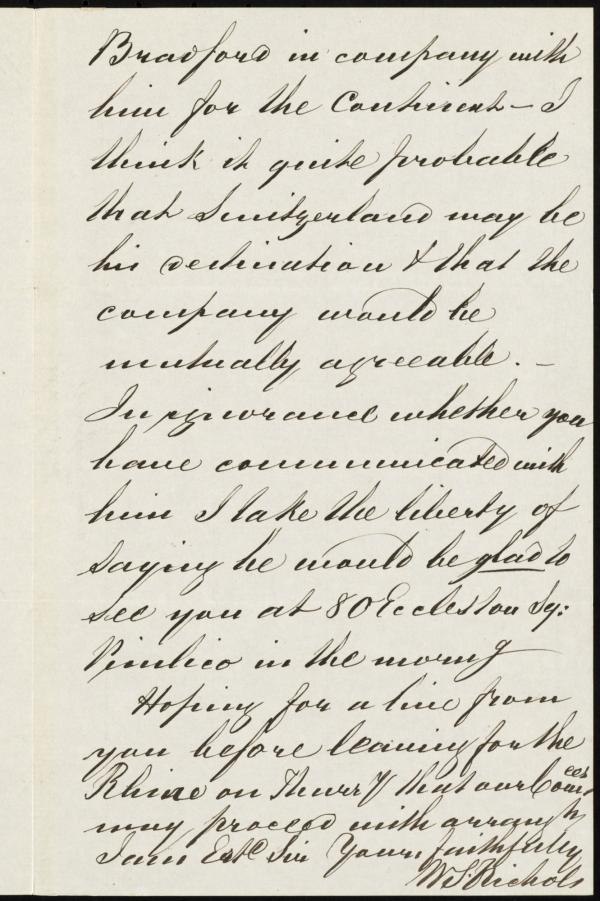 Bradford in company with
him for the Continent – I
think it quite probable
that Switzerland may be
his destination & that the
company would be
mutually agreeable. –
In ignorance whether you
have communicated with
him I take the liberty of
saying he would be glad to
see you at 80 Eccleston Sq:
Pimlico in the morng
Hoping for a line from
you before leaving for the
Rhine on Thursy that our
may proceed with arrangts
I am Estd Sir Yours faithfully
W. S. Nichols